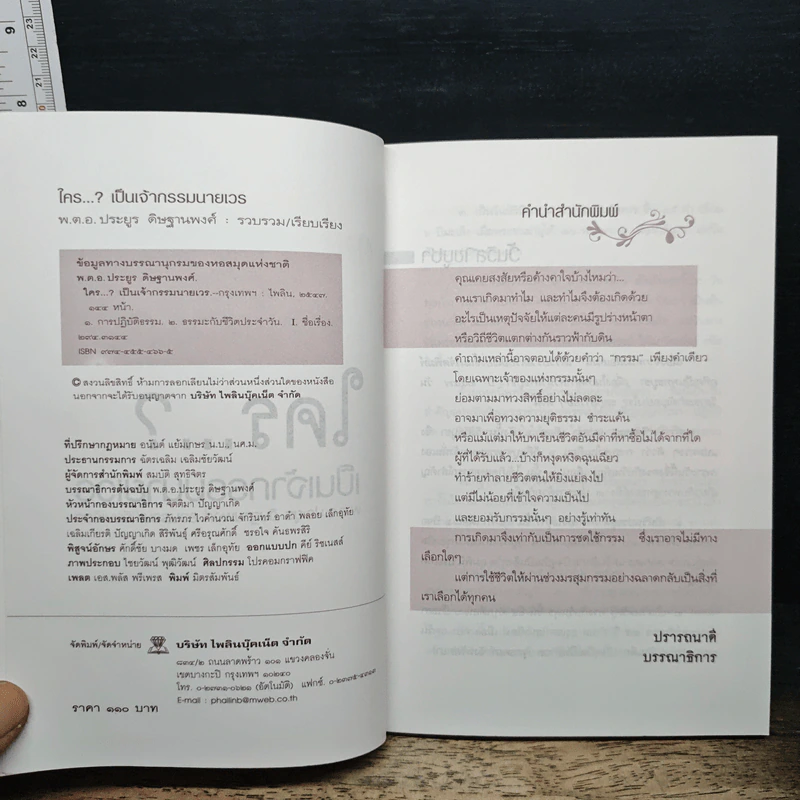 ใคร...? เป็นเจ้ากรรมนายเวร
พ.ต.อ. ประยูร ดิษฐานพงศ์ : รวบรวม/เรียบเรียง
ข้อมูลทางบรรณานุกรมของหอสมุดแห่งชาติ
พ.ต.อ. ประยูร ดิษฐานพงศ์.
ใคร...? เป็นเจ้ากรรมนายเวร.--กรุงเทพฯ : ไพลิน, ๒๕๔๗.
๑๔๔ หน้า.
๑. การปฏิบัติธรรม. ๒. ธรรมะกับชีวิตประจำวัน. I. ชื่อเรื่อง.
๒๙๔.๓๑๔๔
ISBN ๙๗๔-๔๕๕-๔๖๖-๕
© สงวนลิขสิทธิ์ ห้ามการลอกเลียนไม่ว่าส่วนหนึ่งส่วนใดของหนังสือ
นอกจากจะได้รับอนุญาตจาก บริษัท ไพลินบุ๊คเน็ต จำกัด
ที่ปรึกษากฎหมาย อนันต์ แย้มเกษร น.บ., นศ.ม.
ประธานกรรมการ ฉัตรเฉลิม เฉลิมชัยวัฒน์
ผู้จัดการสำนักพิมพ์ สมบัติ สุทธิจิตร
บรรณาธิการต้นฉบับ พ.ต.อ.ประยูร ดิษฐานพงศ์
หัวหน้ากองบรรณาธิการ จิตติมา ปัญญาเกิด
ประจำกองบรรณาธิการ ภัทรภร ไวคำนวณ จักรินทร์ อาดำ พลอย เล็กอุทัย
เฉลิมเกียรติ ปัญญาเกิด สิริพันธุ์ ศรีอรุณศักดิ์ ขรอใจ คันธพรสิริ
พิสูจน์อักษร ศักดิ์ชัย บางมด เพชร เล็กอุทัย ออกแบบปก คีย์ ริชเนสส์
ภาพประกอบ ไชยวัฒน์ พุฒิวัฒน์ ศิลปกรรม โปรคอมกราฟฟิค
เพลต เอส.พลัส พรีเพรส พิมพ์ มิตรสัมพันธ์
จัดพิมพ์/จัดจำหน่าย บริษัท ไพลินบุ๊คเน็ต จำกัด
๘๓๔/๒ ถนนลาดพร้าว ๑๐๑ แขวงคลองจั่น
เขตบางกะปิ กรุงเทพฯ ๑๐๒๔๐
โทร. ๐-๒๗๓๑-๐๖๒๑ (อัตโนมัติ) แฟกซ์.
E-mail : phailinb@mweb.co.th
ราคา ๑๑๐ บาท
คำนำสำนักพิมพ์
คุณเคยสงสัยหรือค้างคาใจบ้างไหมว่า...
คนเราเกิดมาทำไม และทำไมจึงต้องเกิดด้วย
อะไรเป็นเหตุปัจจัยให้แต่ละคนมีรูปร่างหน้าตา
หรือวิถีชีวิตแตกต่างกันราวฟ้ากับดิน
คำถามเหล่านี้อาจตอบได้ด้วยคำว่า "กรรม" เพียงคำเดียว
โดยเฉพาะเจ้าของแห่งกรรมนั้นๆ
ย่อมตามมาทวงสิทธิ์อย่างไม่ลดละ
อาจมาเพื่อทวงความยุติธรรม ชำระแค้น
หรือแม้แต่มาให้บทเรียนชีวิตอันมีค่าที่หาซื้อไม่ได้จากที่ใด
ผู้ที่ได้รับแล้ว...บ้างก็หงุดหงิดฉุนเฉียว
ทำร้ายทำลายชีวิตตนให้ยิ่งแย่ลงไป
แต่มีไม่น้อยที่เข้าใจความเป็นไป
และยอมรับกรรมนั้นๆ อย่างรู้เท่าทัน
การเกิดมาจึงเท่ากับเป็นการชดใช้กรรม ซึ่งเราอาจไม่มีทาง
เลือกใดๆ
แต่การใช้ชีวิตให้ผ่านช่วงมรสุมกรรมอย่างฉลาดกลับเป็นสิ่งที่
เราเลือกได้ทุกคน
ปรารถนาดี
บรรณาธิการ